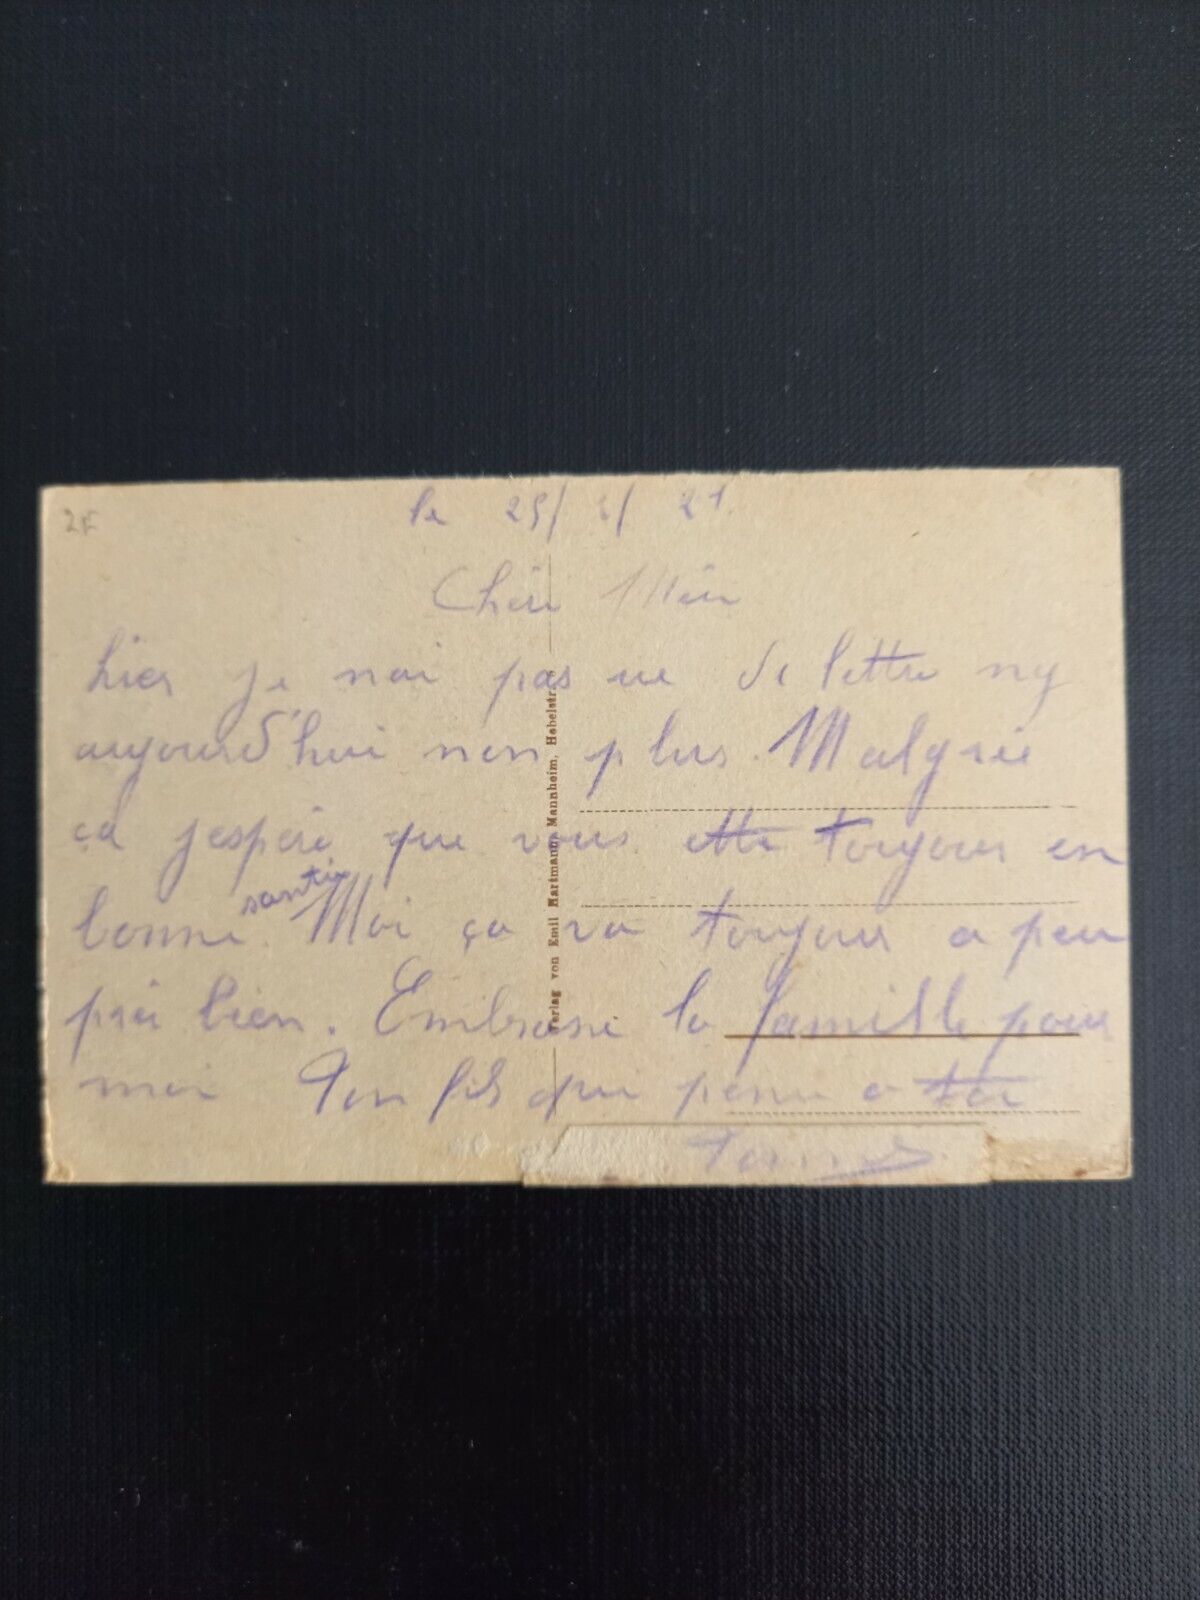 2F
le 25/ / 21.
Chère Mère
hier je nai pas ue de lettre ny
aujourd'hui non plus. Malgrée
ça j'espère que vous ette toujours en
bonne santé. Moi ça va toujour a peu
près bien. Embrasse la famille pour
moi Ton fils qui pense a toi
Verlag von Emil Hartmann, Mannheim, Hebelstr.